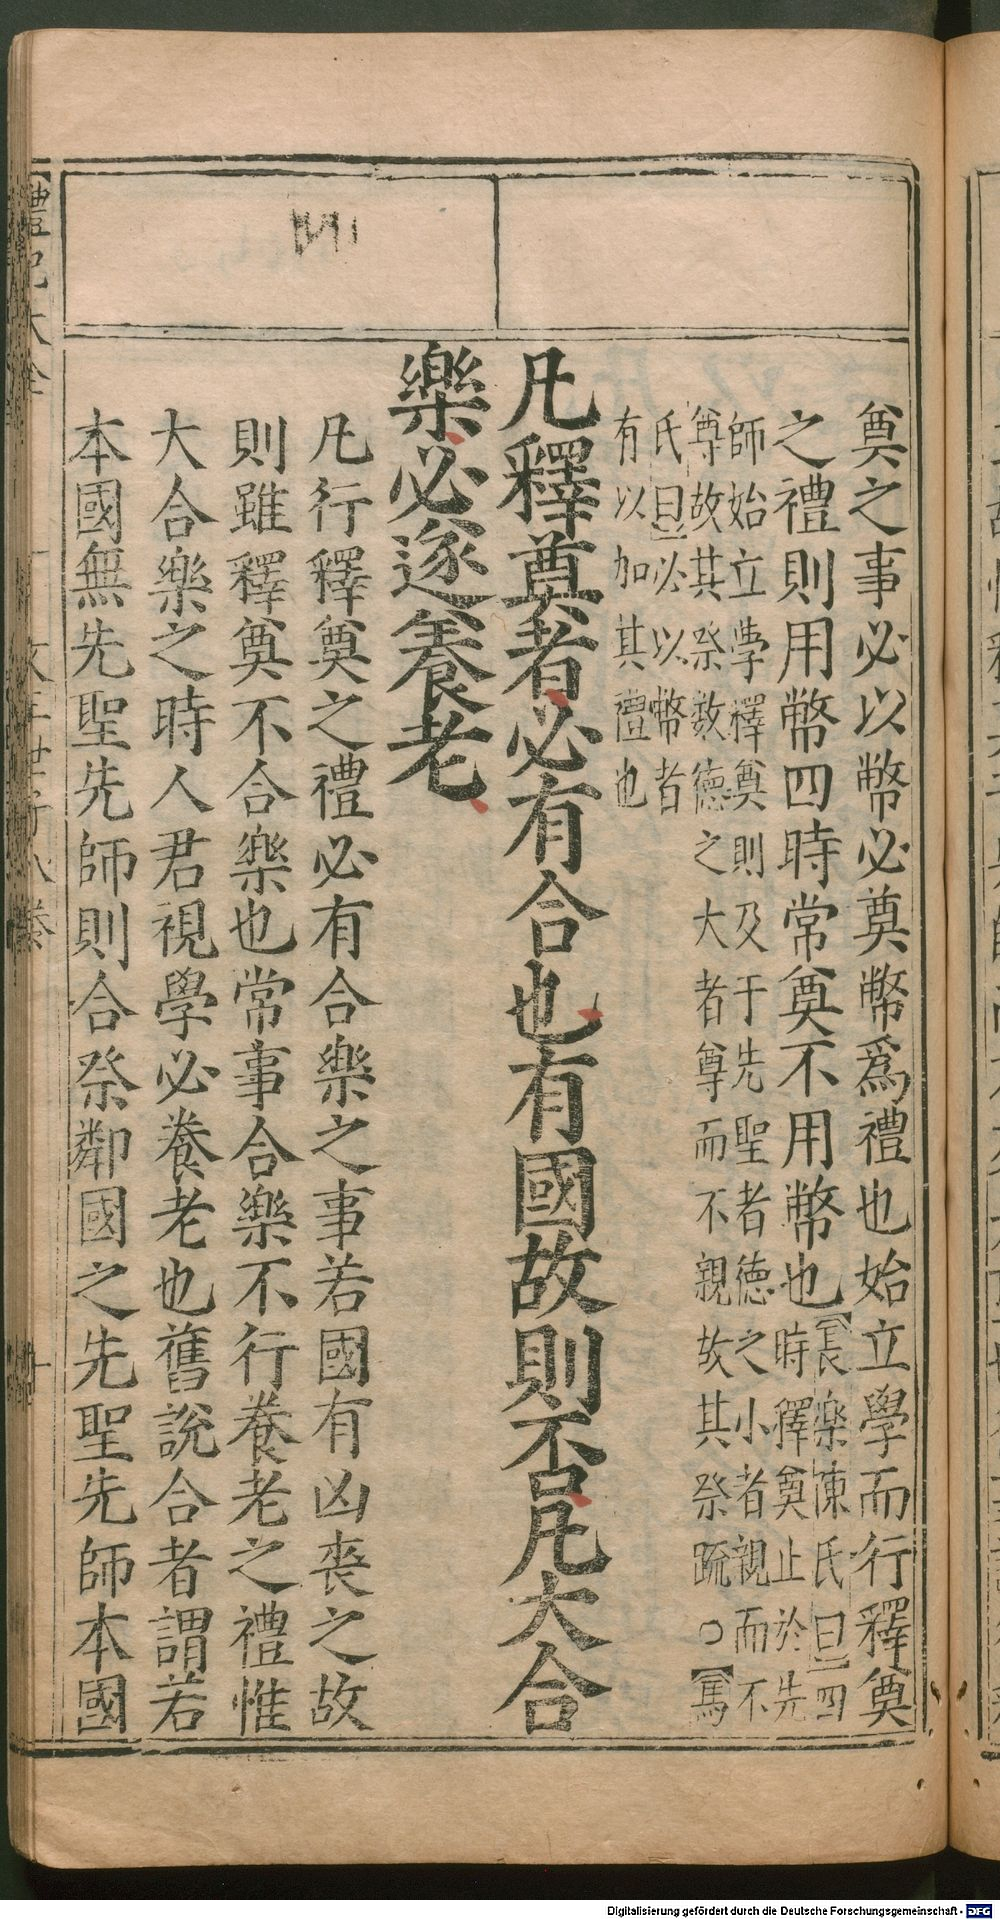 奠之事必以幣必奠幣爲禮也始立學而行釋奠
之禮則用幣四時常奠不用幣也【長樂陳氏曰】四
時釋奠止於先
師始立學釋奠則及于先聖者德之小者親而不
尊故其祭数德之大者尊而不親故其祭疏○【馬
氏曰】必以幣者
有以加其禮也
凡釋奠者必有合也有國故則不凡大合
樂必遂養老
凡行釋奠之禮必有合樂之事若國有凶喪之故
則雖釋奠不合樂也常事合樂不行養老之禮惟
大合樂之時人君視學必養老也舊說合者謂若
本國無先聖先師則合祭鄰國之先聖先師本國
禮記大全
Digitalisierung gefördert durch die Deutsche Forschungsgemeinschaft - DFG